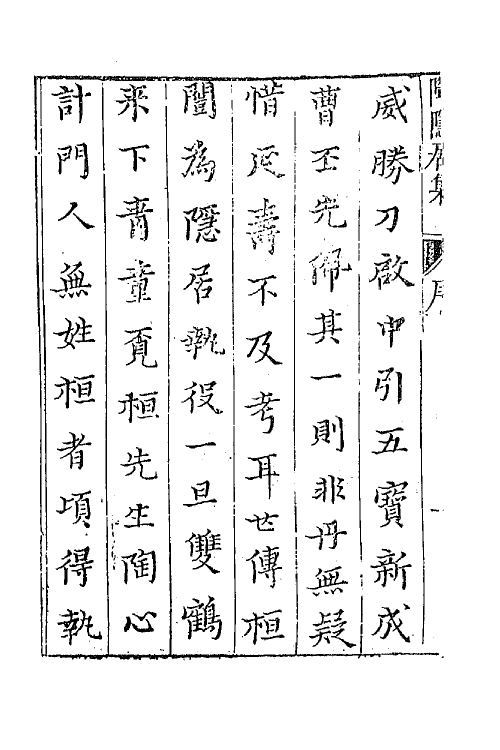 威勝刀啟中引五寶新成
曹丕先佩其一則非丹無疑
惜延壽不及考耳世傳桓
闓為隱居執役一旦雙鶴
來下青童覔桓先生陶心
計門人無姓桓者頃得執
隱居集
序